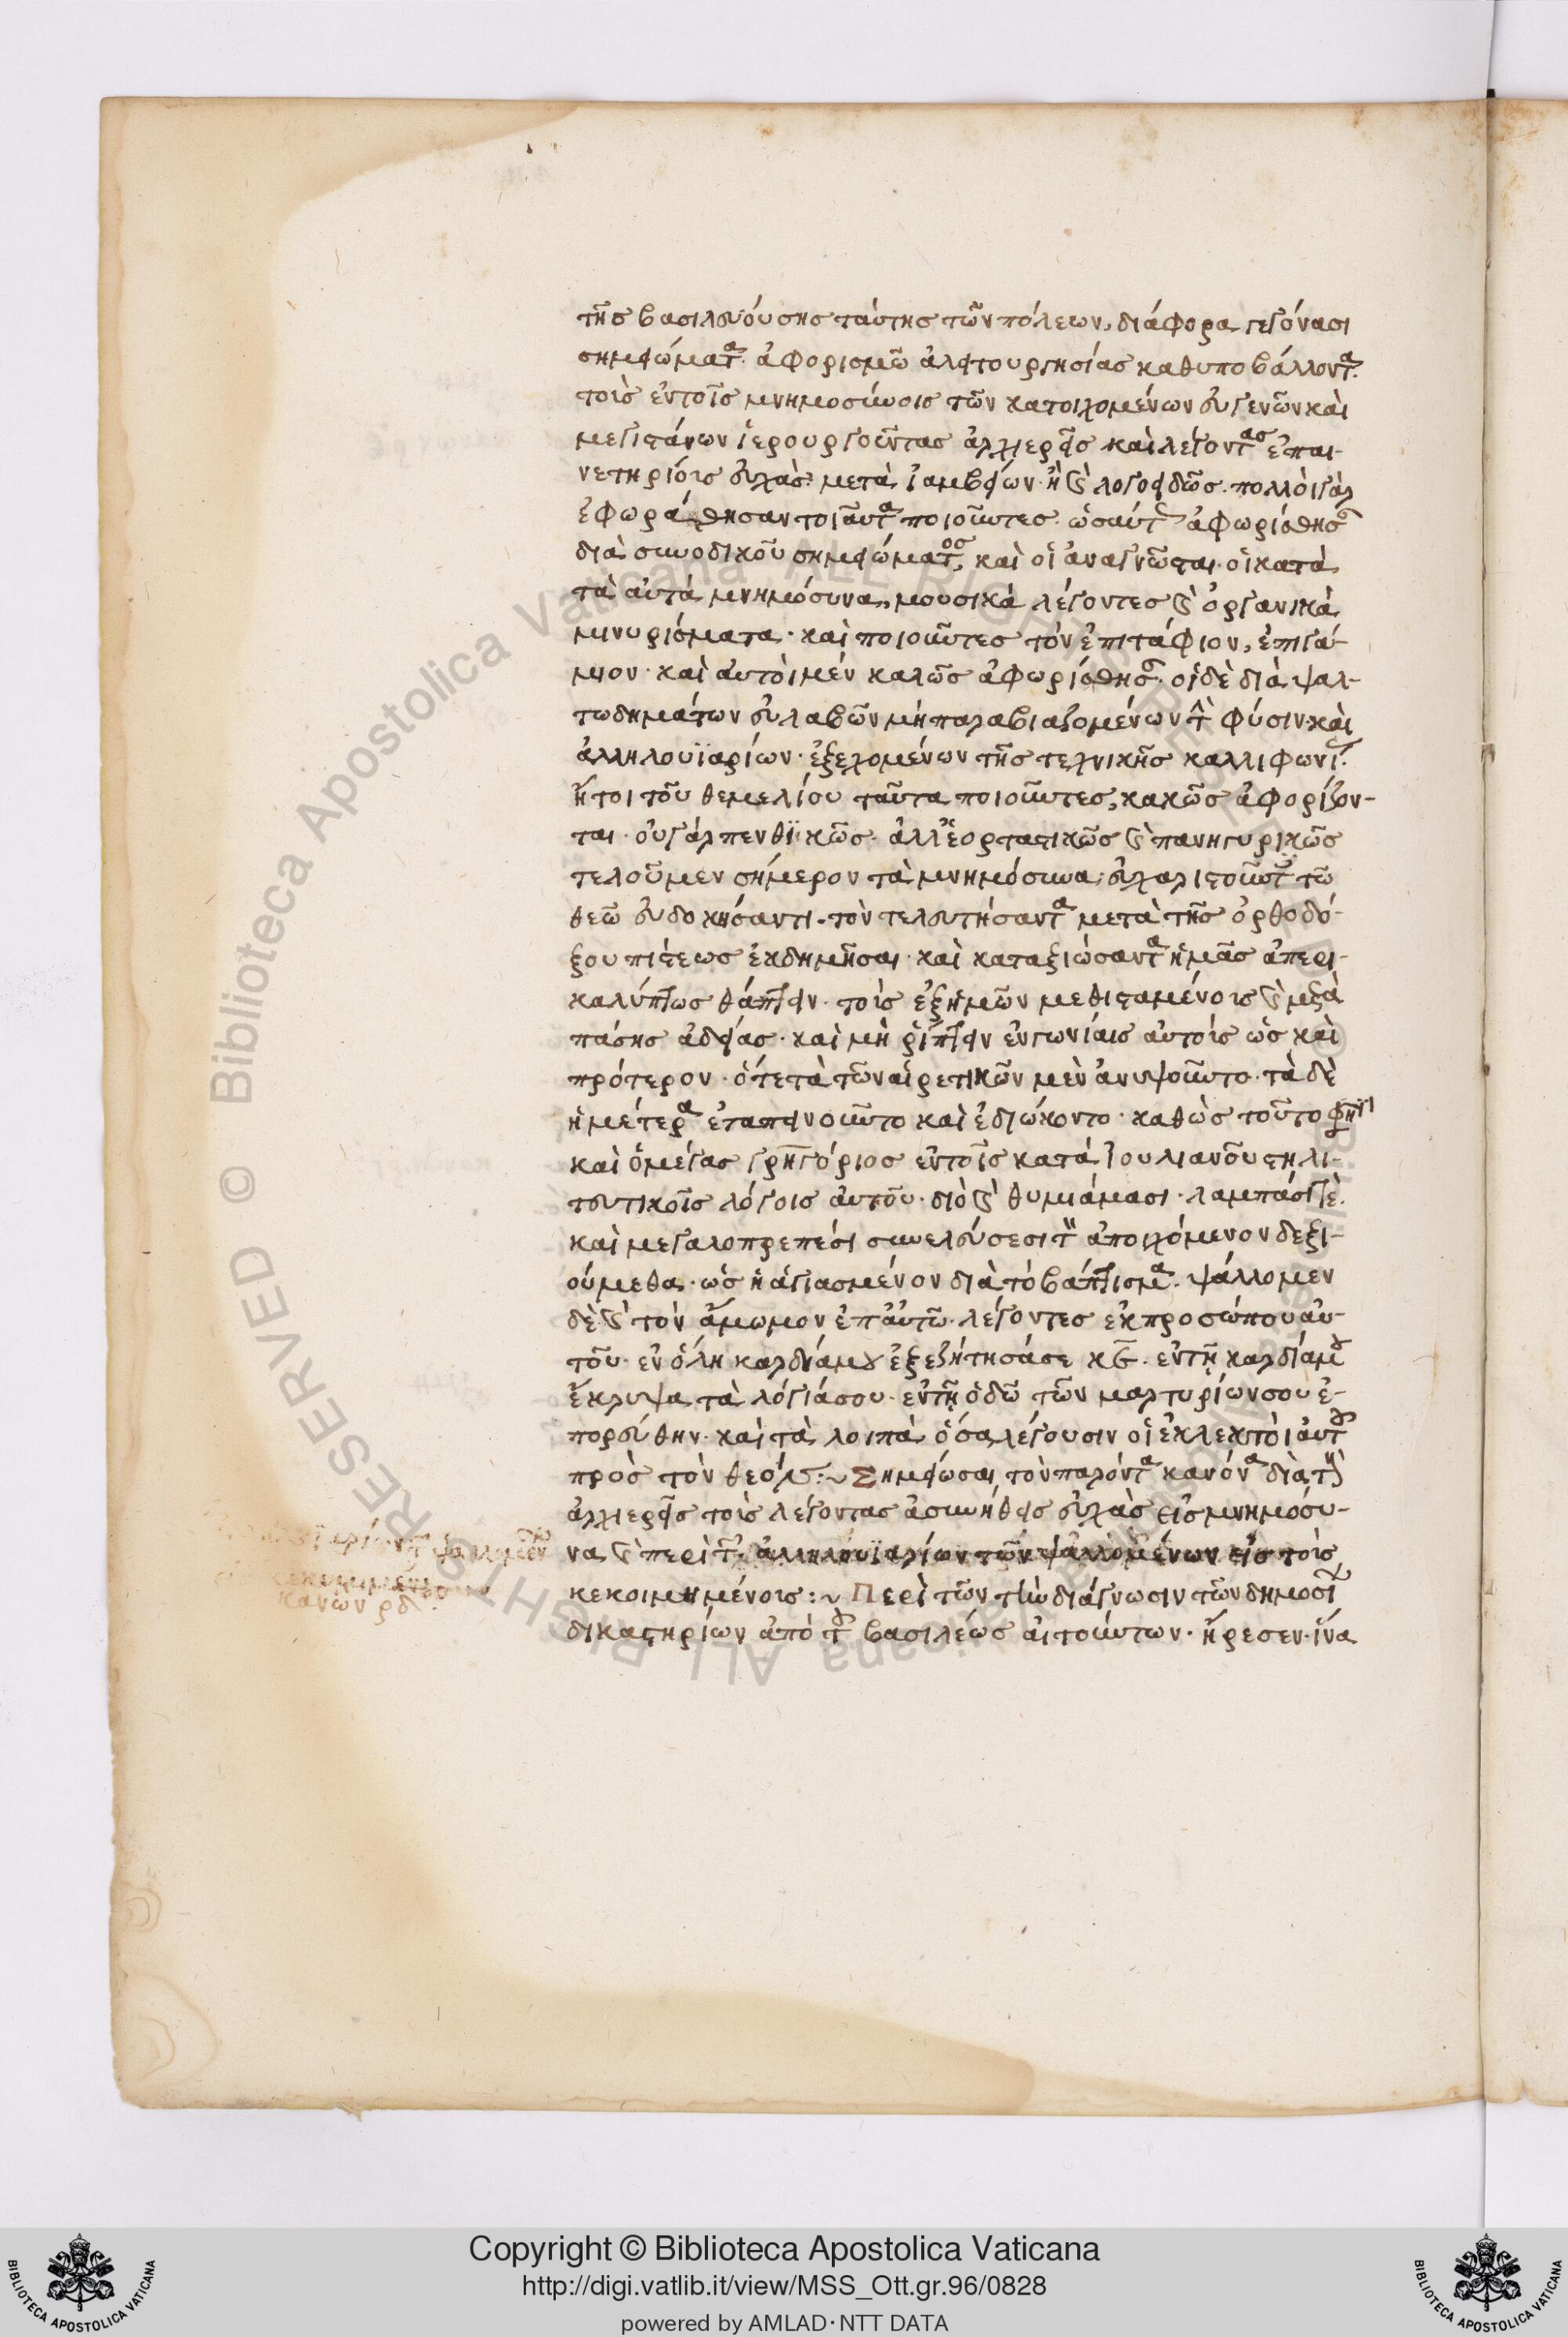 τῆς βασιλευούσης ταύτης τῶν πόλεων, διάφορα γεγόνασι
σημειώματα. ἀφορισμῶ ἀλειτουργησίας καθυποβάλλοντα.
τοὺς ἐν τοῖς μνημοσύνοις τῶν κατοιχομένων εὐγενῶν καὶ
μεγιστάνων ἱερουργοῦντας ἀρχιερεῖς καὶ λέγοντας ἐπαι-
νετηρίους εὐχὰς μετὰ ἰαμβείων ἢ καὶ λογοειδῶς. πολλοὶ γὰρ
ἐφωράθησαν τοιαῦτα ποιοῦντες. ὡσαύτως ἀφωρίσθησαν
διὰ συνοδικοῦ σημειώματος, καὶ οἱ ἀναγνῶσται. οἱ κατὰ
τὰ αὐτὰ μνημόσυνα, μουσικὰ λέγοντες καὶ ὀργανικὰ
μινυρίσματα. καὶ ποιοῦντες τὸν ἐπιτάφιον, ἐπιγά-
μιον. καὶ αὐτοὶ μὲν καλῶς ἀφωρίσθησαν. οἱ δὲ διὰ ψαλ-
τωδημάτων συλλαβῶν μὴ παραβιαζομένων τὴν φύσιν καὶ
ἀλληλουϊαρίων. ἐξεχομένων τῆς τεχνικῆς καλλιφωνίας.
ἤτοι τοῦ θεμελίου ταῦτα ποιοῦντες, κακῶς ἀφορίζον-
ται. οὐ γὰρ πενθϊκῶς. ἀλλ' ἑορταστικῶς καὶ πανηγυρικῶς
τελοῦμεν σήμερον τὰ μνημόσυνα, εὐχαριστοῦντες τῶ
θεῶ εὐδοκήσαντι. τὸν τελευτήσαντα μετὰ τῆς ὀρθοδό-
ξου πίστεως ἐκδημῆσαι. καὶ καταξιώσαντα ἡμᾶς ἀπερι-
καλύπτως θάπτειν. τοὺς ἐξ ἡμῶν μεθισταμένοις καὶ μετὰ
πάσης ἀδείας. καὶ μὴ ῥίπτειν ἐν γωνίαις αὐτοὺς ὡς καὶ
πρότερον. ὅτε τὰ τῶν αἱρετικῶν μὲν ἀνυψοῦντο. τὰ δὲ
ἡμέτερα ἐταπεινοῦντο καὶ ἐδιώκοντο. καθὼς τοῦτο φησὶ
καὶ ὁ μέγας γρηγόριος ἐν τοῖς κατὰ Ἰουλιανοῦ στηλι-
τευτικοῖς λόγοις αὐτοῦ. διὸ καὶ θυμιάμασι. λαμπάσί τε.
καὶ μεγαλοπρεπέσι συνελεύσεσι τὸν ἀποιχόμενον δεξι-
ούμεθα. ὡς ἡγιασμένον διὰ τὸ βάπτισμα. ψάλλομεν
δὲ καὶ τὸν ἄμωμον ἐπ' αὐτῶ. λέγοντες ἐκ προσώπου αὐ-
τοῦ. ἐν ὅλη καρδία μου ἐξεζήτησά σε κε. ἐν τῆ καρδία μου
ἔκρυψα τὰ λόγιά σου. ἐν τῆ ὁδῶ τῶν μαρτυρίων σου ἐ-
πορεύθην. καὶ τὰ λοιπὰ ὅσα λέγουσιν οἱ ἐκλεκτοὶ αὐτοῦ
πρὸς τὸν θεόν :~ Σημείωσαι τὸν παρόντα κανόνα διὰ τοὺς
ἀρχιερεῖς τοὺς λέγοντας ἀσυνήθεις εὐχὰς εἰς μνημόσυ-
να καὶ περὶ τῶν ἀλληλουϊαρίων τῶν ψαλλομένων εἰς τοὺς
κεκοιμημένους :~ Περὶ τῶν τὴν διάγνωσιν τῶν δημοσίων
δικαστηρίων ἀπὸ τοῦ βασιλέως αἰτούντων. ἤρεσεν. ἵνα
κανὼν ρδ.
Copyright © Biblioteca Apostolica Vaticana
http://digi.vatlib.it/view/MSS_Ott.gr.96/0828
powered by AMLAD·NTT DATA
BIBLIOTECA APOSTOLICA VATICANA
BIBLIOTECA APOSTOLICA VATICANA
© Biblioteca Apostolica Vaticana ALL RIGHTS RESERVED